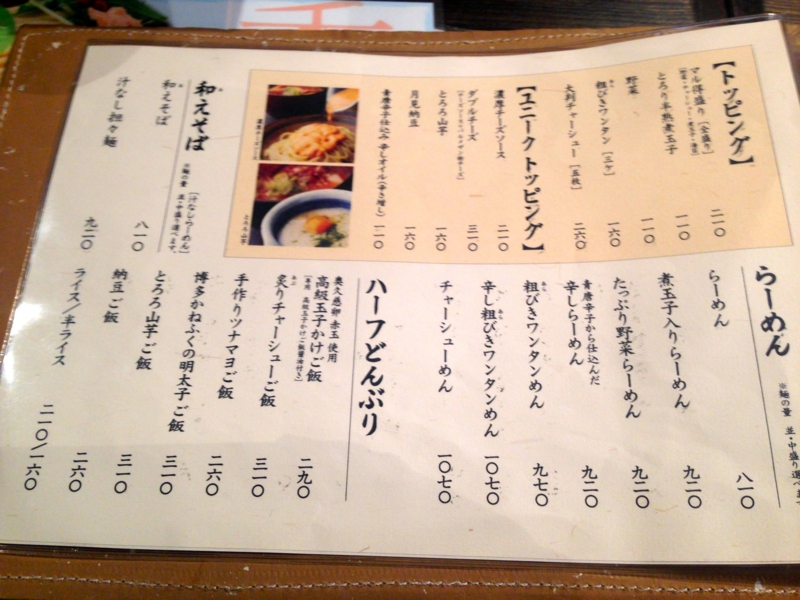 【トッピング】
マル得盛り（全盛り）
二一〇
とろり半熟煮玉子
一一〇
野菜
一一〇
粗びきワンタン［三ケ］
一六〇
大判チャーシュー［五枚］
二六〇
【ユニークトッピング】
濃厚チーズソース
二一〇
ダブルチーズ
三一〇
とろろ山芋
一六〇
月見納豆
一六〇
青唐辛子仕込み 辛しオイル（辛さ増し）
一一〇
濃厚チーズソース
とろろ山芋
和えそば
［汁なしらーめん］
※麺の量 並・中盛り選べます。
和えそば
八一〇
汁なし担々麺
九二〇
らーめん
※麺の量 並・中盛り選べます
らーめん
八一〇
煮玉子入りらーめん
九二〇
たっぷり野菜らーめん
九二〇
青唐辛子から仕込んだ
辛しらーめん
九二〇
粗びきワンタンめん
九七〇
辛し粗びきワンタンめん
一〇七〇
チャーシューめん
一〇七〇
ハーフどんぶり
奥久慈卵 赤玉 使用
高級玉子かけご飯
［専用 高級玉子かけご飯醤油付き］
二九〇
炙りチャーシューご飯
三一〇
手作りツナマヨご飯
二六〇
博多かねふくの明太子ご飯
三一〇
とろろ山芋ご飯
三一〇
納豆ご飯
二六〇
ライス／半ライス
二一〇／一六〇